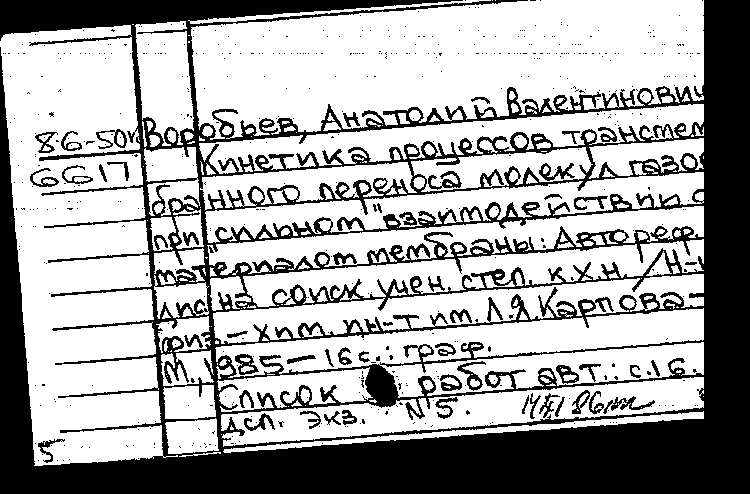 86-50к Воробьев, Анатолий Валентинович
6617 Кинетика процессов трансмем
бранного переноса молекул газов
при "сильном" взаимодействии с
материалом мембраны: Автореф.
дис на соиск. учен. степ. к.х.н. / Н-
физ.-хим. ин-т им. Л.Я.Карпова -
М., 1985 - 16 с.: граф.
Список работ авт.: с.16.
дсп. экз. N 5.
5